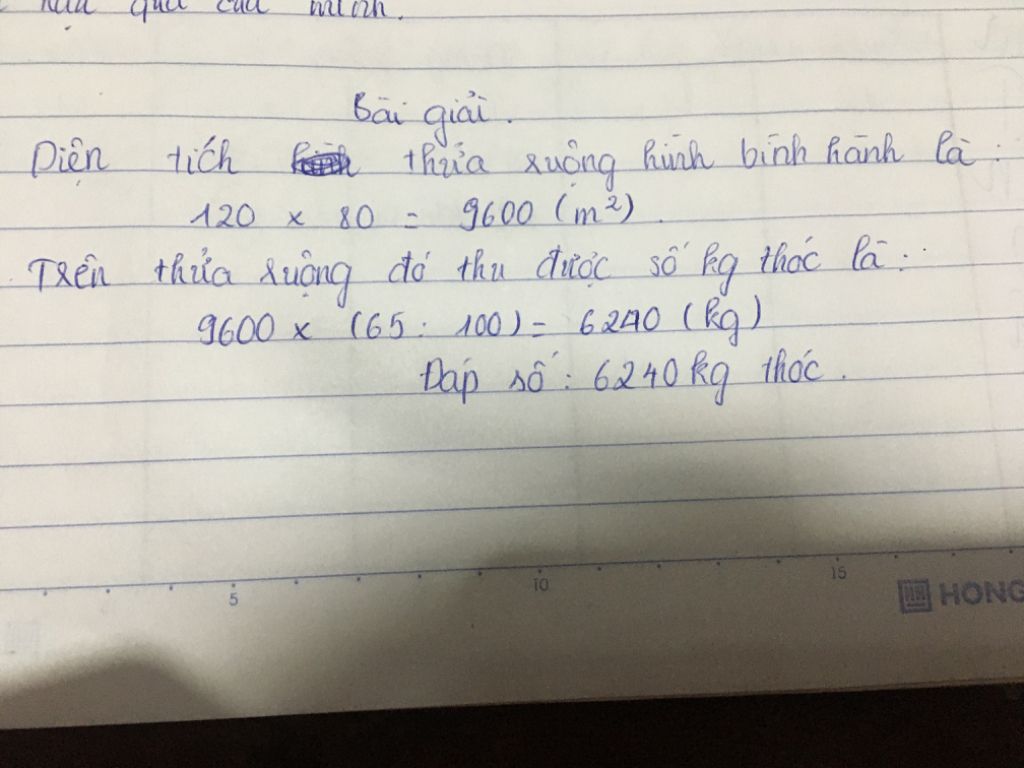 quả của mình.
Bài giải.
Diện tích thửa ruộng hình bình hành là:
120 x 80 = 9600 (m²).
Trên thửa ruộng đó thu được số kg thóc là:
9600 x (65 : 100) = 6240 (kg)
Đáp số: 6240 kg thóc.
5 10 15
HONG